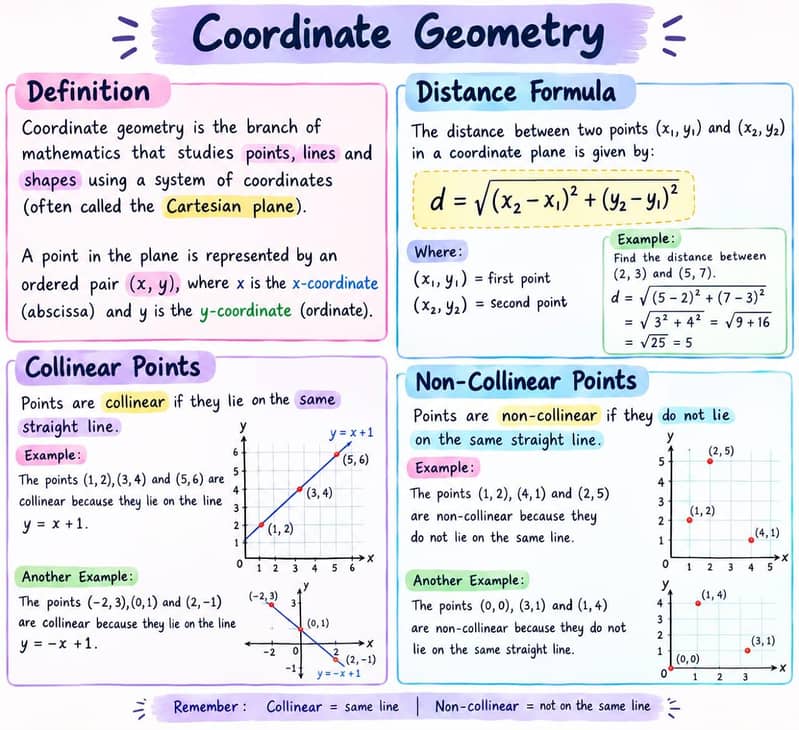 Coordinate Geometry
Definition
Coordinate geometry is the branch of
mathematics that studies points, lines and
shapes using a system of coordinates
(often called the Cartesian plane).
A point in the plane is represented by an
ordered pair (x, y), where x is the x-coordinate
(abscissa) and y is the y-coordinate (ordinate).
Distance Formula
The distance between two points (x₁, y₁) and (x₂, y₂)
in a coordinate plane is given by:
d = √((x₂ − x₁)² + (y₂ − y₁)²)
Where:
(x₁, y₁) = first point
(x₂, y₂) = second point
Example:
Find the distance between
(2, 3) and (5, 7).
d = √((5 − 2)² + (7 − 3)²)
= √(3² + 4²) = √(9 + 16)
= √25 = 5
Collinear Points
Points are collinear if they lie on the same
straight line.
Example:
The points (1, 2), (3, 4) and (5, 6) are
collinear because they lie on the line
y = x + 1.
y
y = x + 1
6
5
4
3
2
1
(5, 6)
(3, 4)
(1, 2)
0 1 2 3 4 5 6 x
Another Example:
The points (−2, 3), (0, 1) and (2, −1)
are collinear because they lie on the line
y = −x + 1.
y
(−2, 3)
3
(0, 1)
x
−2 0 2
(2, −1)
−1
y = −x + 1
Non-Collinear Points
Points are non-collinear if they do not lie
on the same straight line.
Example:
The points (1, 2), (4, 1) and (2, 5)
are non-collinear because they
do not lie on the same line.
y
(2, 5)
5
4
3
2
1
(1, 2)
(4, 1)
0 1 2 3 4 5 x
Another Example:
The points (0, 0), (3, 1) and (1, 4)
are non-collinear because they do not
lie on the same straight line.
y
(1, 4)
4
3
2
1
(3, 1)
(0, 0)
0 1 2 3 x
Remember : Collinear = same line | Non-collinear = not on the same line